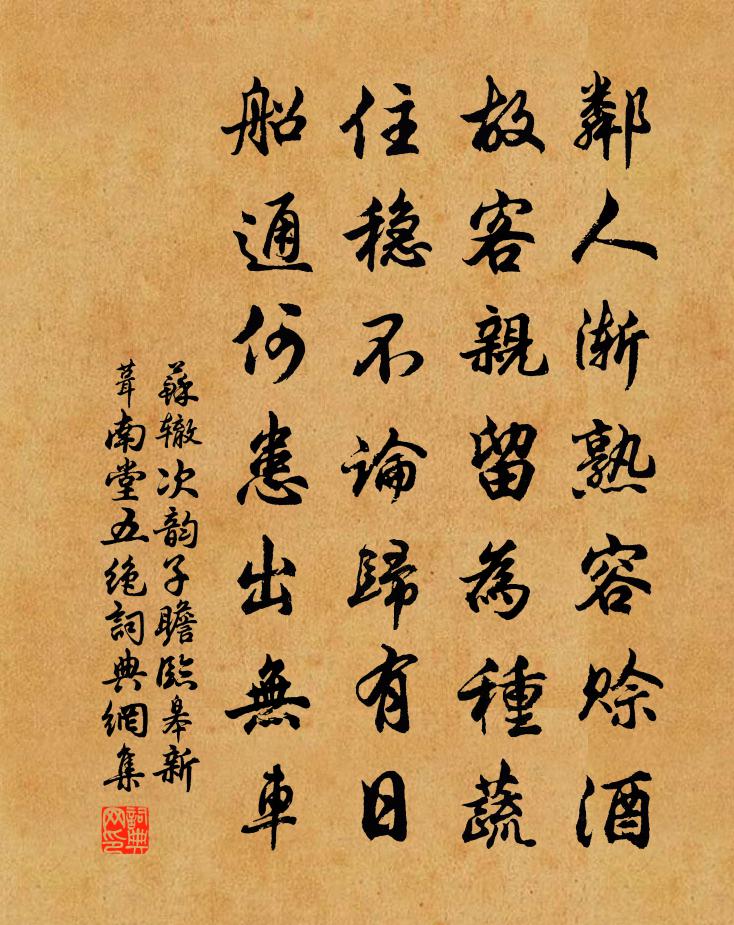 鄰人漸熟容賒酒
故客親留為種蔬
住穩不論歸有日
船通何患出無車
蘇轍次韵子瞻臨皋新
葺南堂五絕詞典網集
詞典
网印